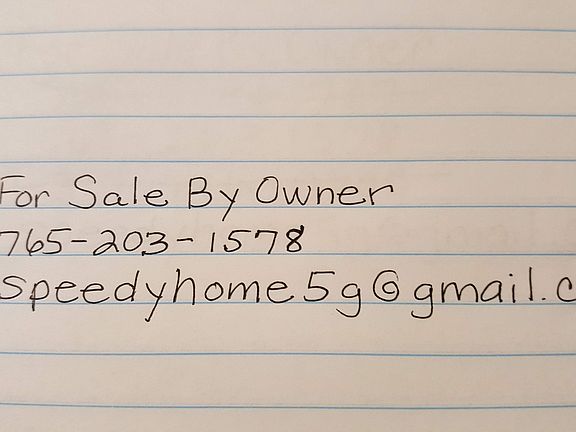 For Sale By Owner
765-203-1578
speedyhome5g@gmail.c